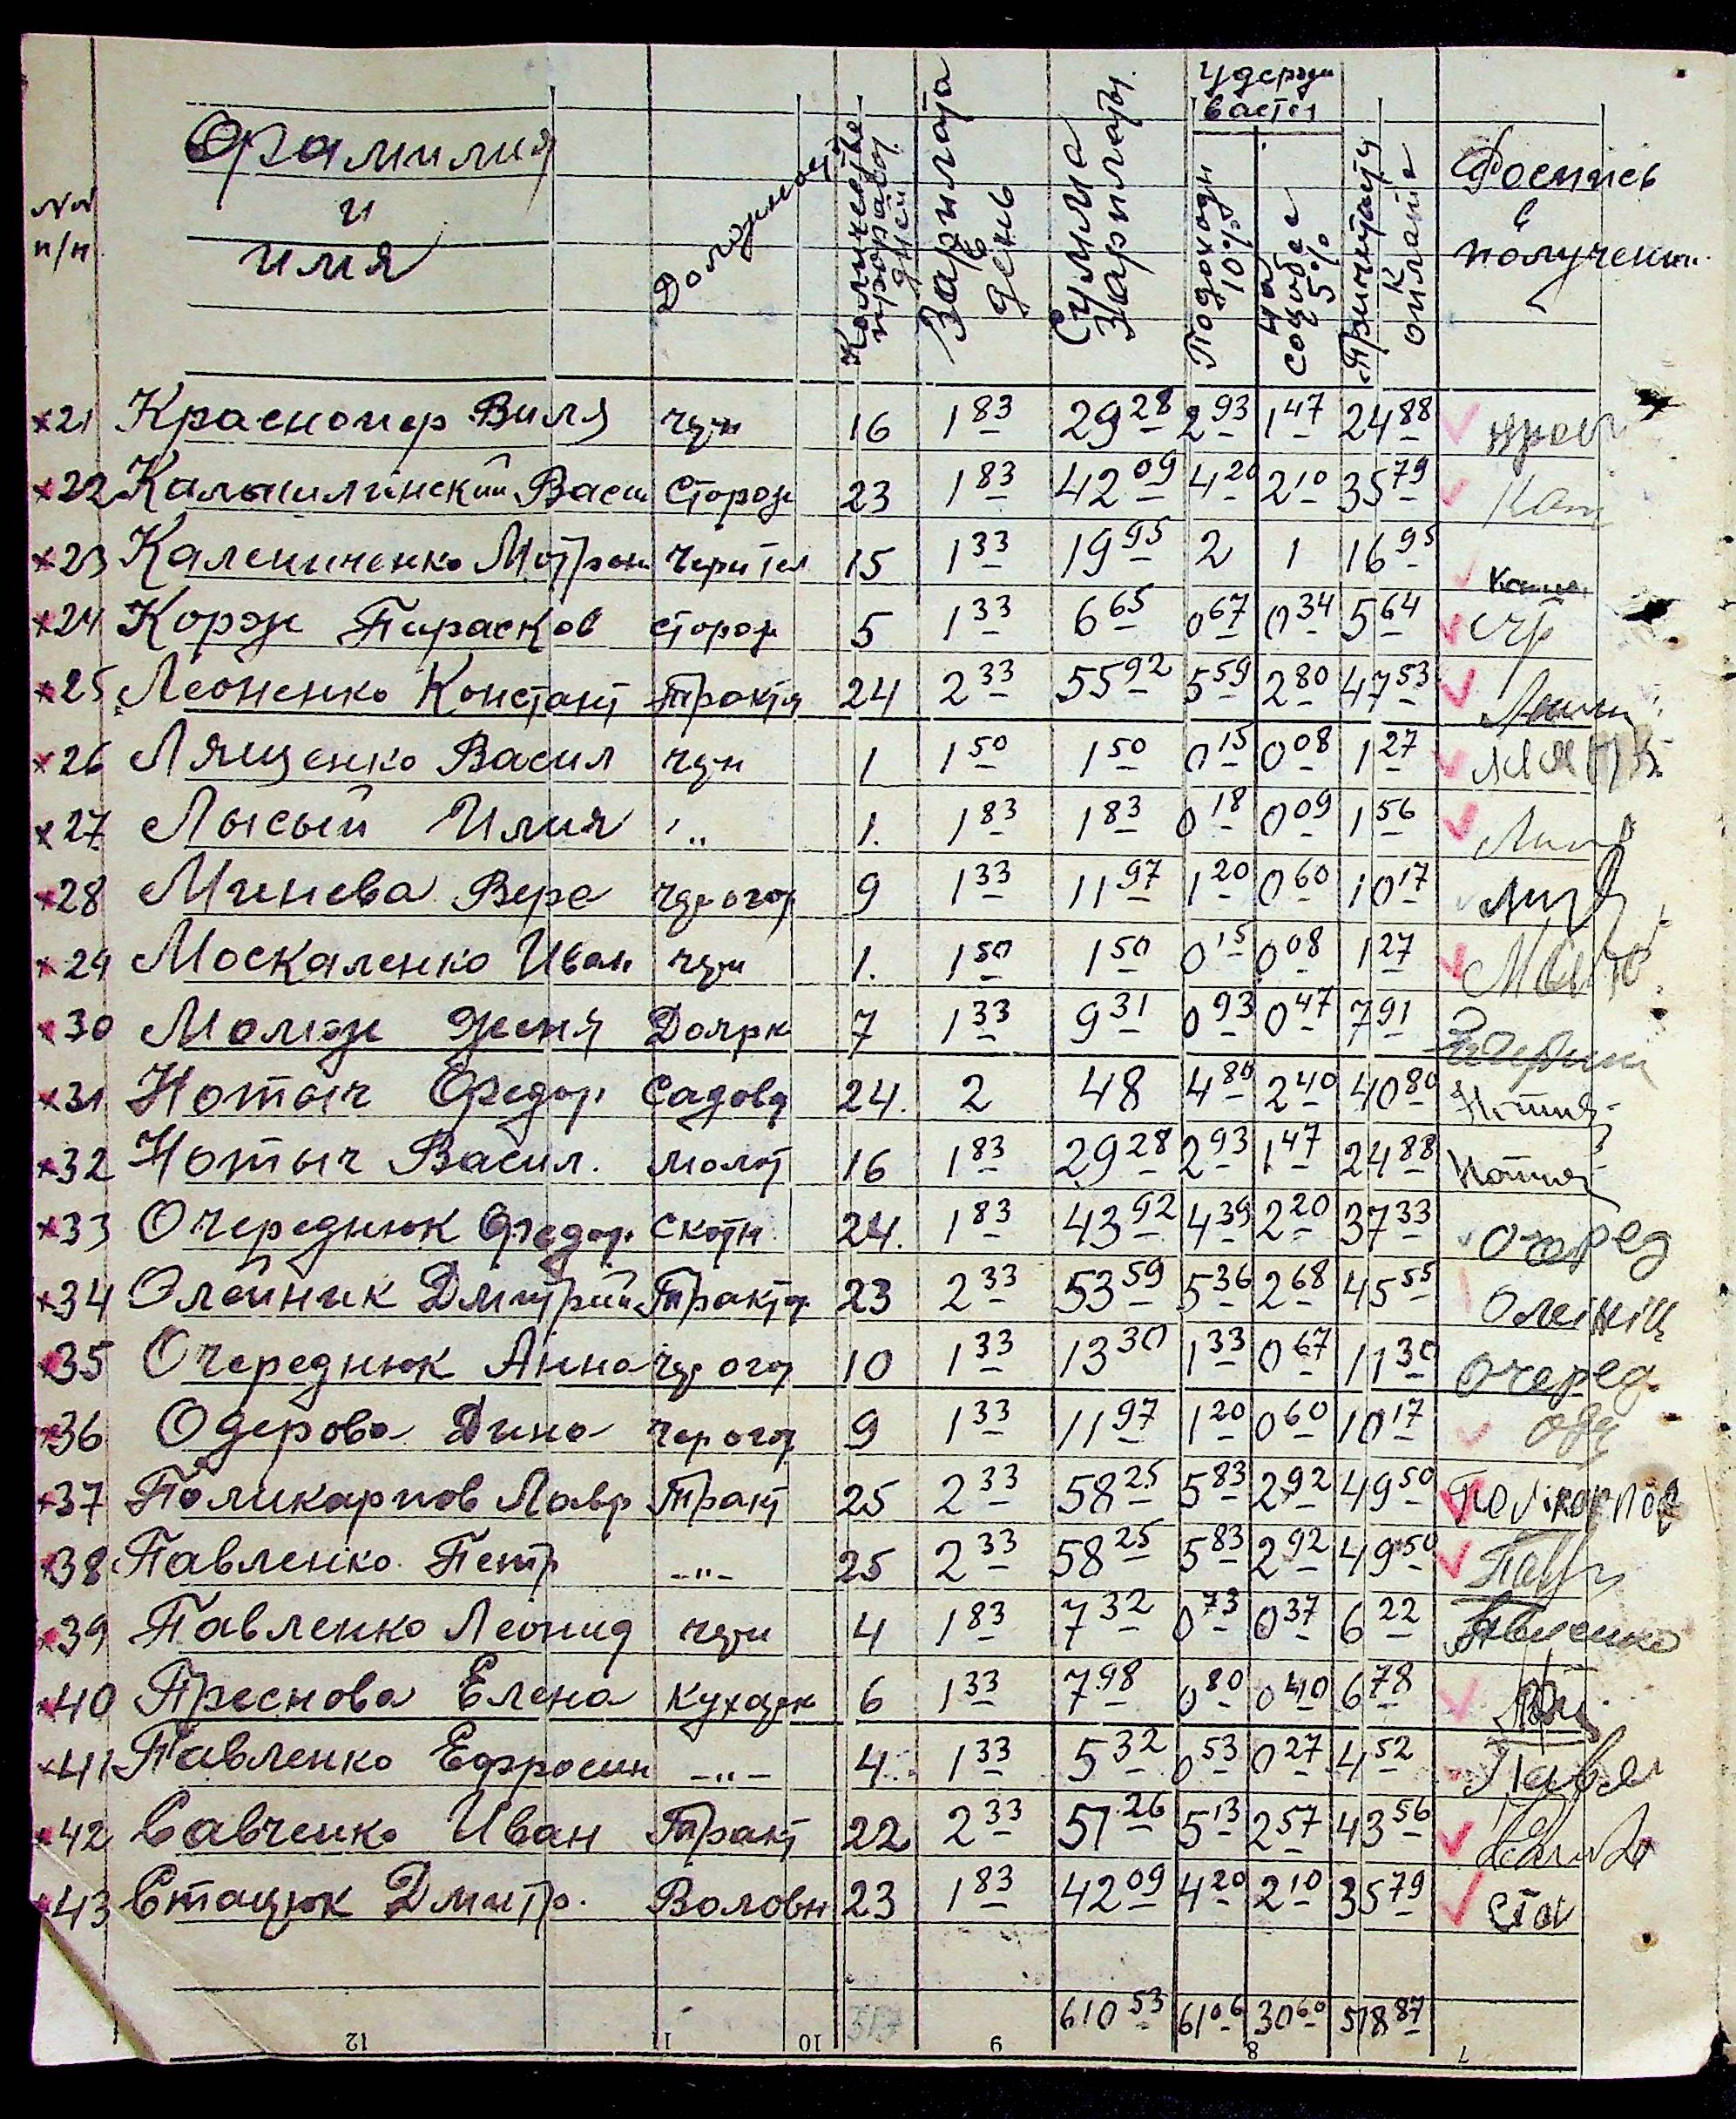 NN п/н
Фамилия и имя
Должност
Количество проработ дней
Зарплата в день
Сумма Зарплаты
Удержи вается
Подоходн 10%
5%
к оплате
Роспись в получении
21 Краснопер Виля чун 16 1 83 29 28 2 93 1 47 24 88
22 Кальшилинский Васи Сторож 23 1 83 42 09 4 20 2 10 35 79 Кал
23 Калениченко Мотрон 15 1 33 19 95 2 1 16 95
24 Корж Парасков сторож 5 1 33 6 65 0 67 0 34 5 64
25 Леоненко Констант Тракти 24 2 33 55 92 5 59 2 80 47 53
26 Лященко Васил чун 1 1 50 1 50 0 15 0 08 1 27
27 Лысый Илия -"- 1. 1 83 1 83 0 18 0 09 1 56
28 Минева Вера 9 1 33 11 97 1 20 0 60 10 17
29 Москаленко Иван чун 1. 1 50 1 50 0 15 0 08 1 27
30 Женя Доярк 7 1 33 9 31 0 93 0 47 7 91
31 Нотыч Федор Садовд 24. 2 48 4 80 2 40 40 80
32 Нотыч Васил. молот 16 1 83 29 28 2 93 1 47 24 88
33 Очереднюк Федор. скотн. 24. 1 83 43 92 4 39 2 20 37 33 Очеред
34 Олейник Дмитрий Трактор 23 2 33 53 59 5 36 2 68 45 55 Олейніц
35 Очереднюк Анна 10 1 33 13 30 1 33 0 67 11 30 Очеред.
36 Одерова Дина 9 1 33 11 97 1 20 0 60 10 17
37 Поликарпов Лавр Тракт 25 2 33 58 25 5 83 2 92 49 50
38 Павленко Петр -"- 25 2 33 58 25 5 83 2 92 49 50
39 Павленко Леонид чун 4 1 83 7 32 0 73 0 37 6 22
40 Преснова Елена Кухарк 6 1 33 7 98 0 80 0 40 6 78
41 Павленко Ефросин -"- 4 1 33 5 32 0 53 0 27 4 52 Павл
42 Савченко Иван Тракт 22 2 33 51 26 5 13 2 57 43 56
43 Стацюк Дмитр. Воловн 23 1 83 42 09 4 20 2 10 35 79 Стац
610 53 61 06 30 60 518 87
12 11 10 9 8 7